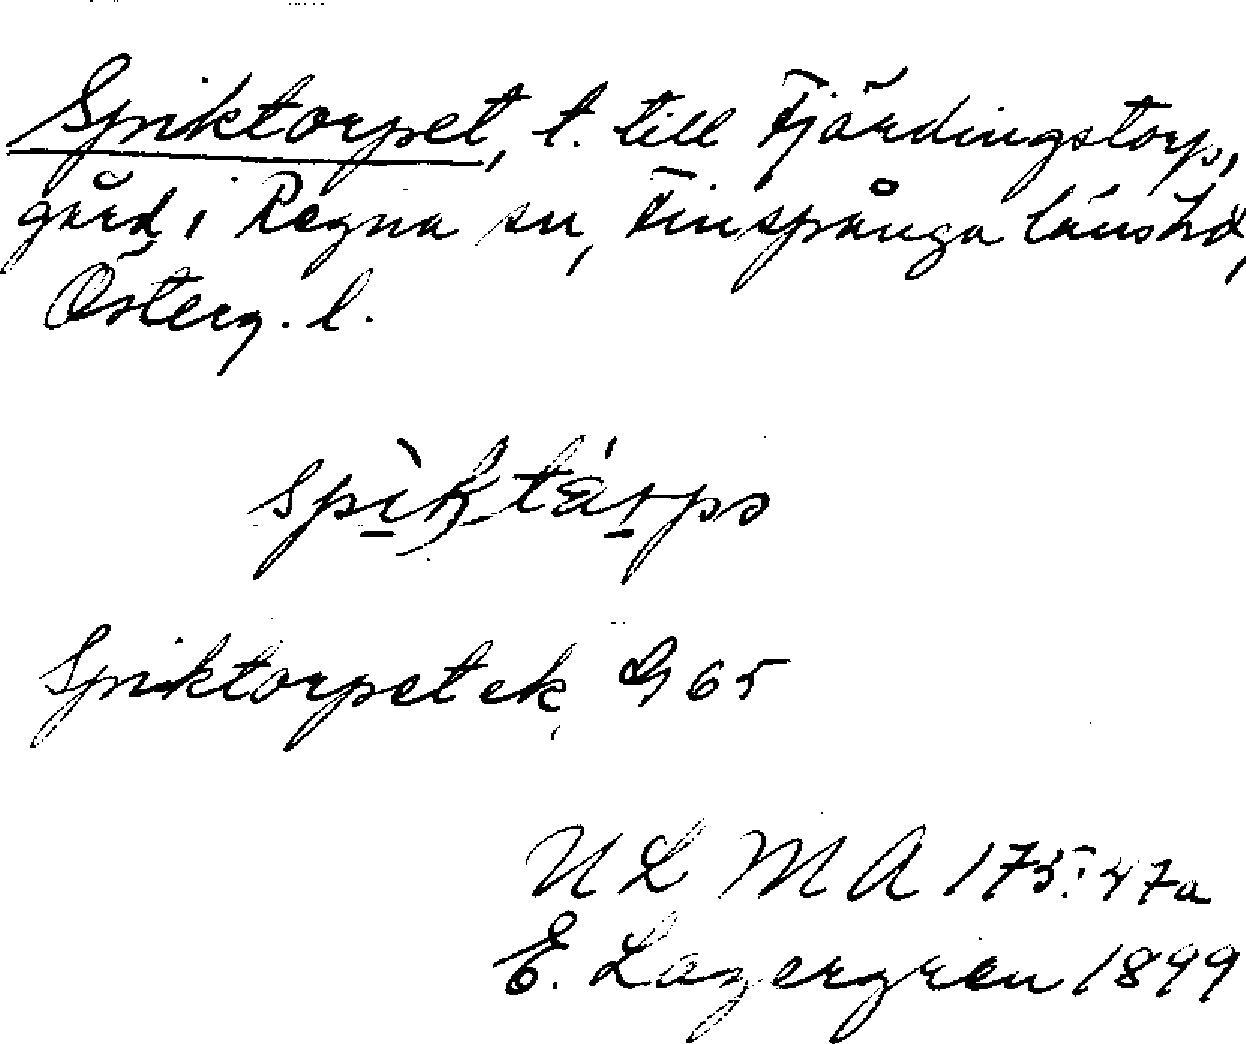 Spiktorpet, t. till Fjärdingstorp,
gård i Regna sn, Finspånga länshd,
Österg. l.
Spiktorpet ek G 65
ULMA 175:47a
E. Lagergren 1899